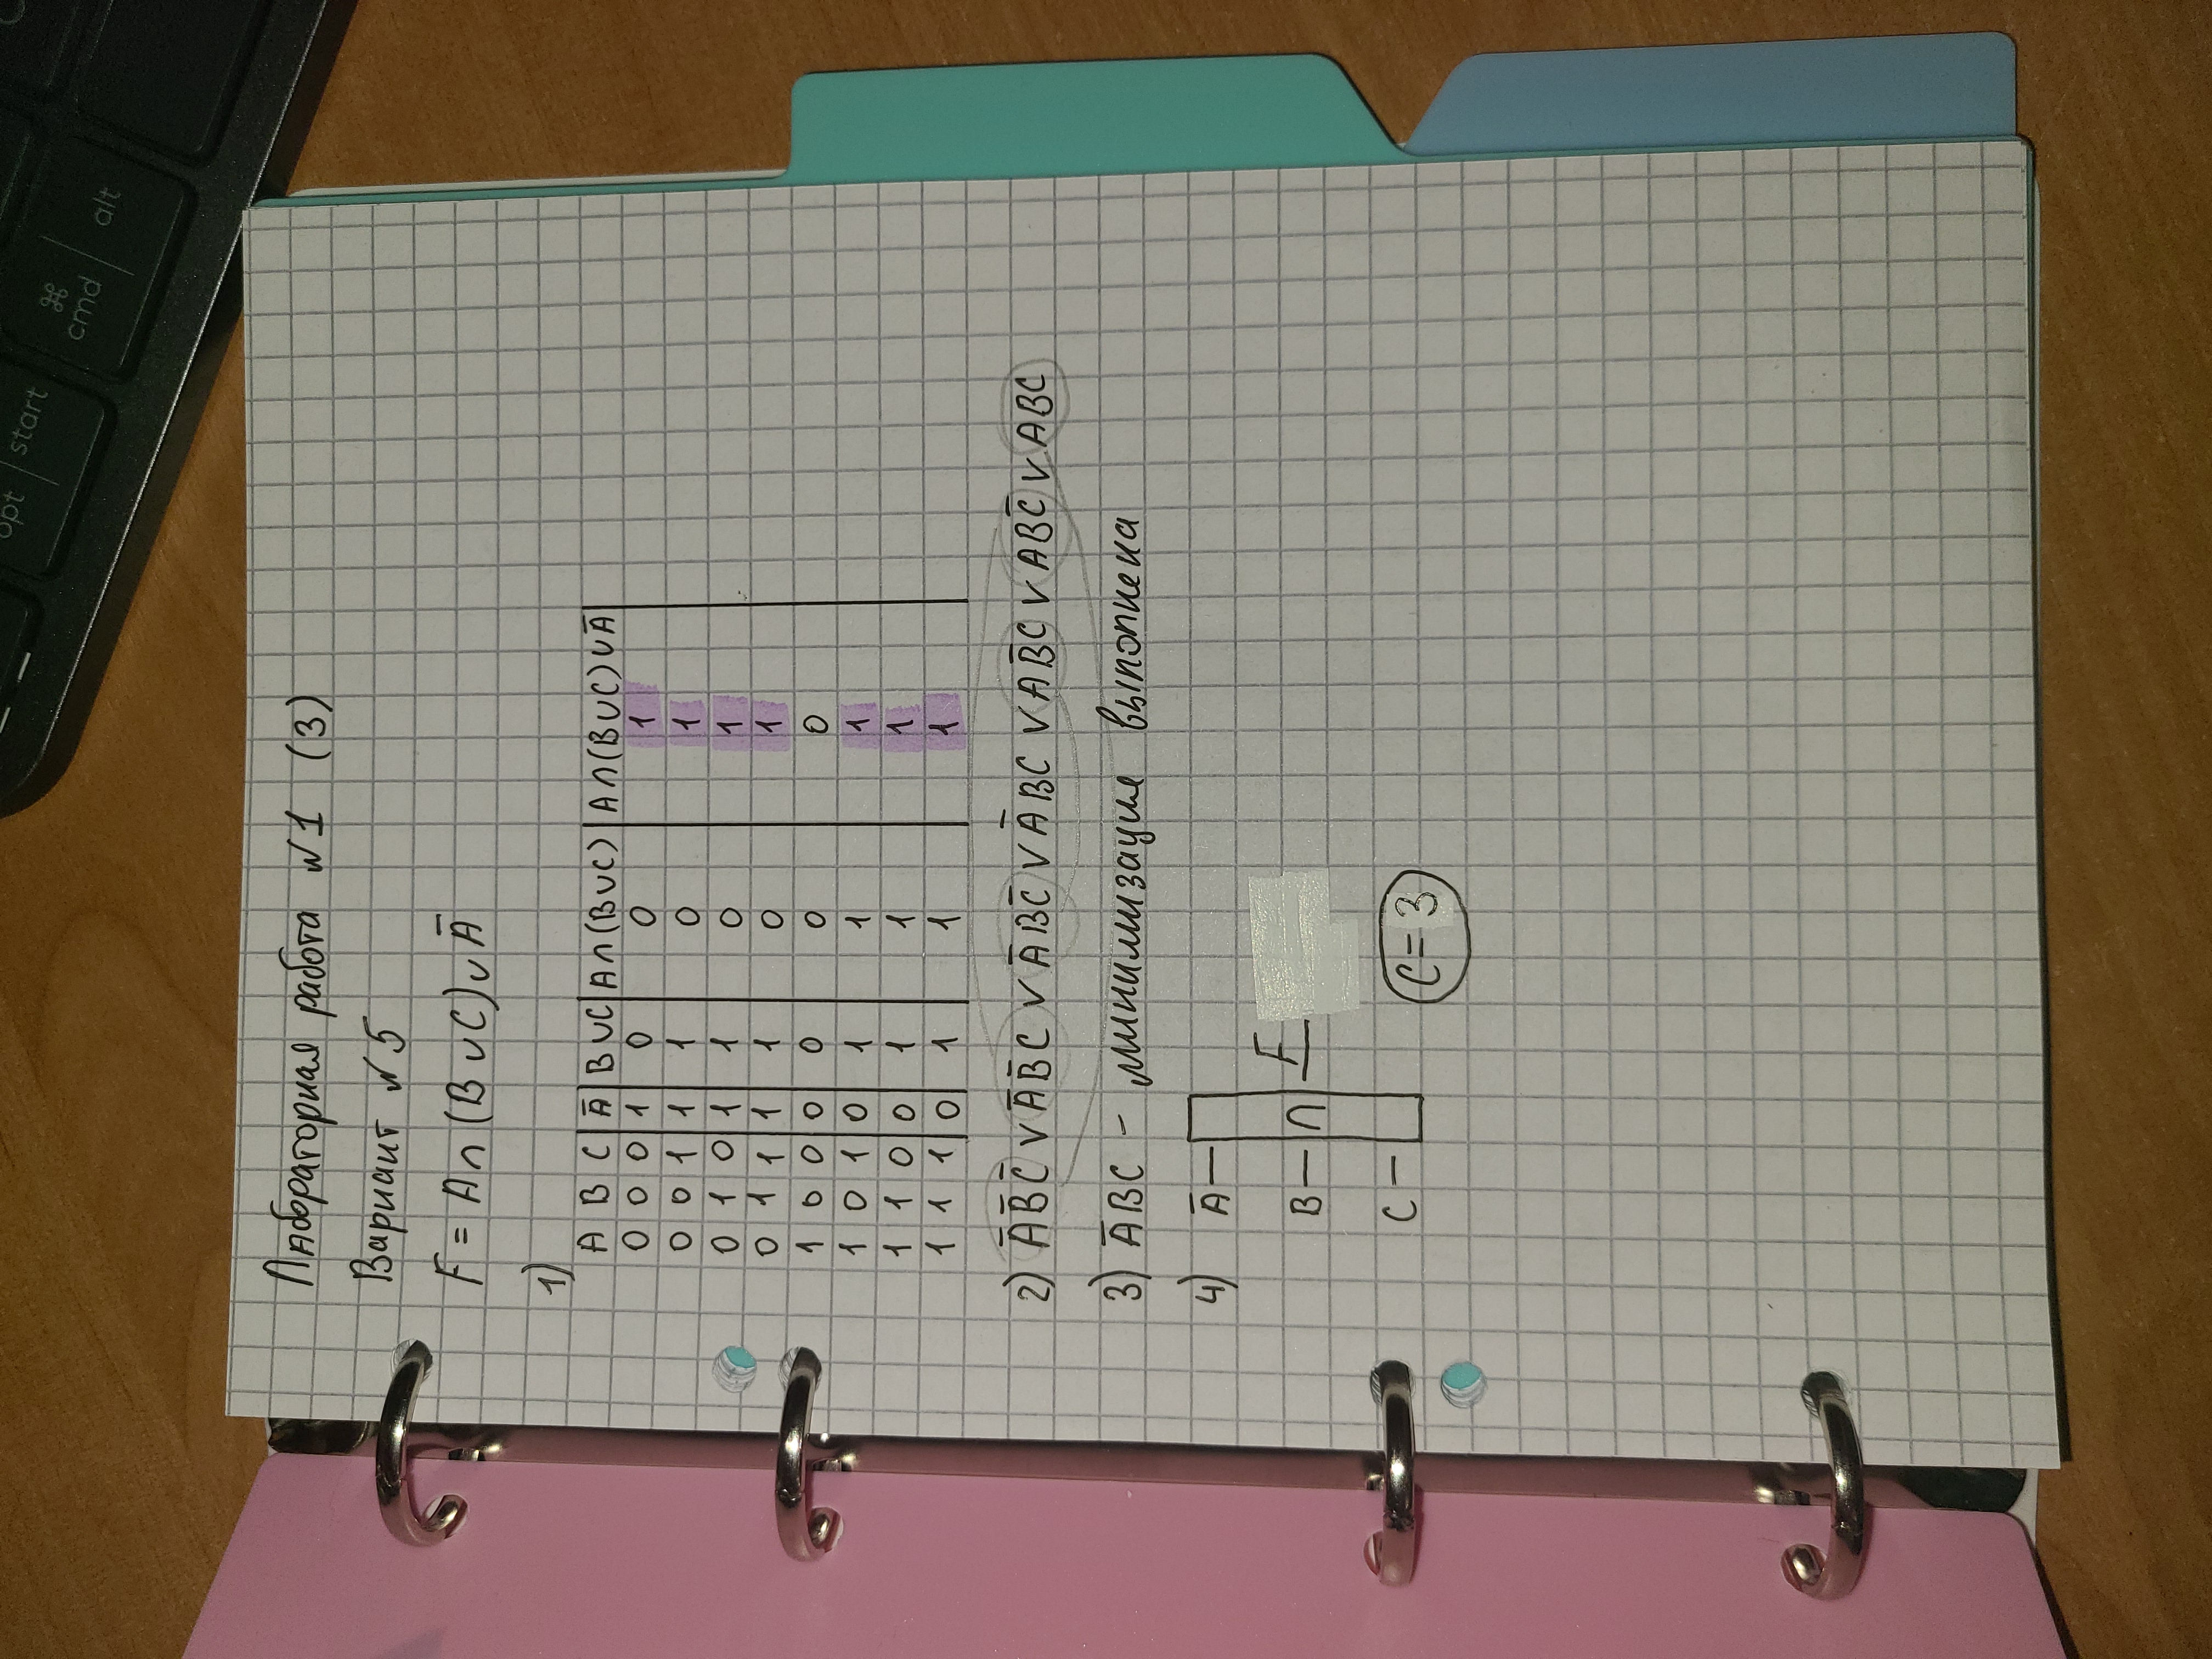 opt start
⌘
cmd alt
Лабораторная работа №1 (3)
Вариант №5
F = A∩(B∪C)∪A̅
1)
A B C A̅ B∪C A∩(B∪C) A∩(B∪C)∪A̅
0 0 0 1 0 0 1
0 0 1 1 1 0 1
0 1 0 1 1 0 1
0 1 1 1 1 0 1
1 0 0 0 0 0 0
1 0 1 0 1 1 1
1 1 0 0 1 1 1
1 1 1 0 1 1 1
2) A̅B̅C̅ ∨ A̅B̅C ∨ A̅BC̅ ∨ A̅BC ∨ AB̅C ∨ ABC̅ ∨ ABC
3) A̅BC - минимизация выполнена
4) A̅
F
B ∩
C
C=3